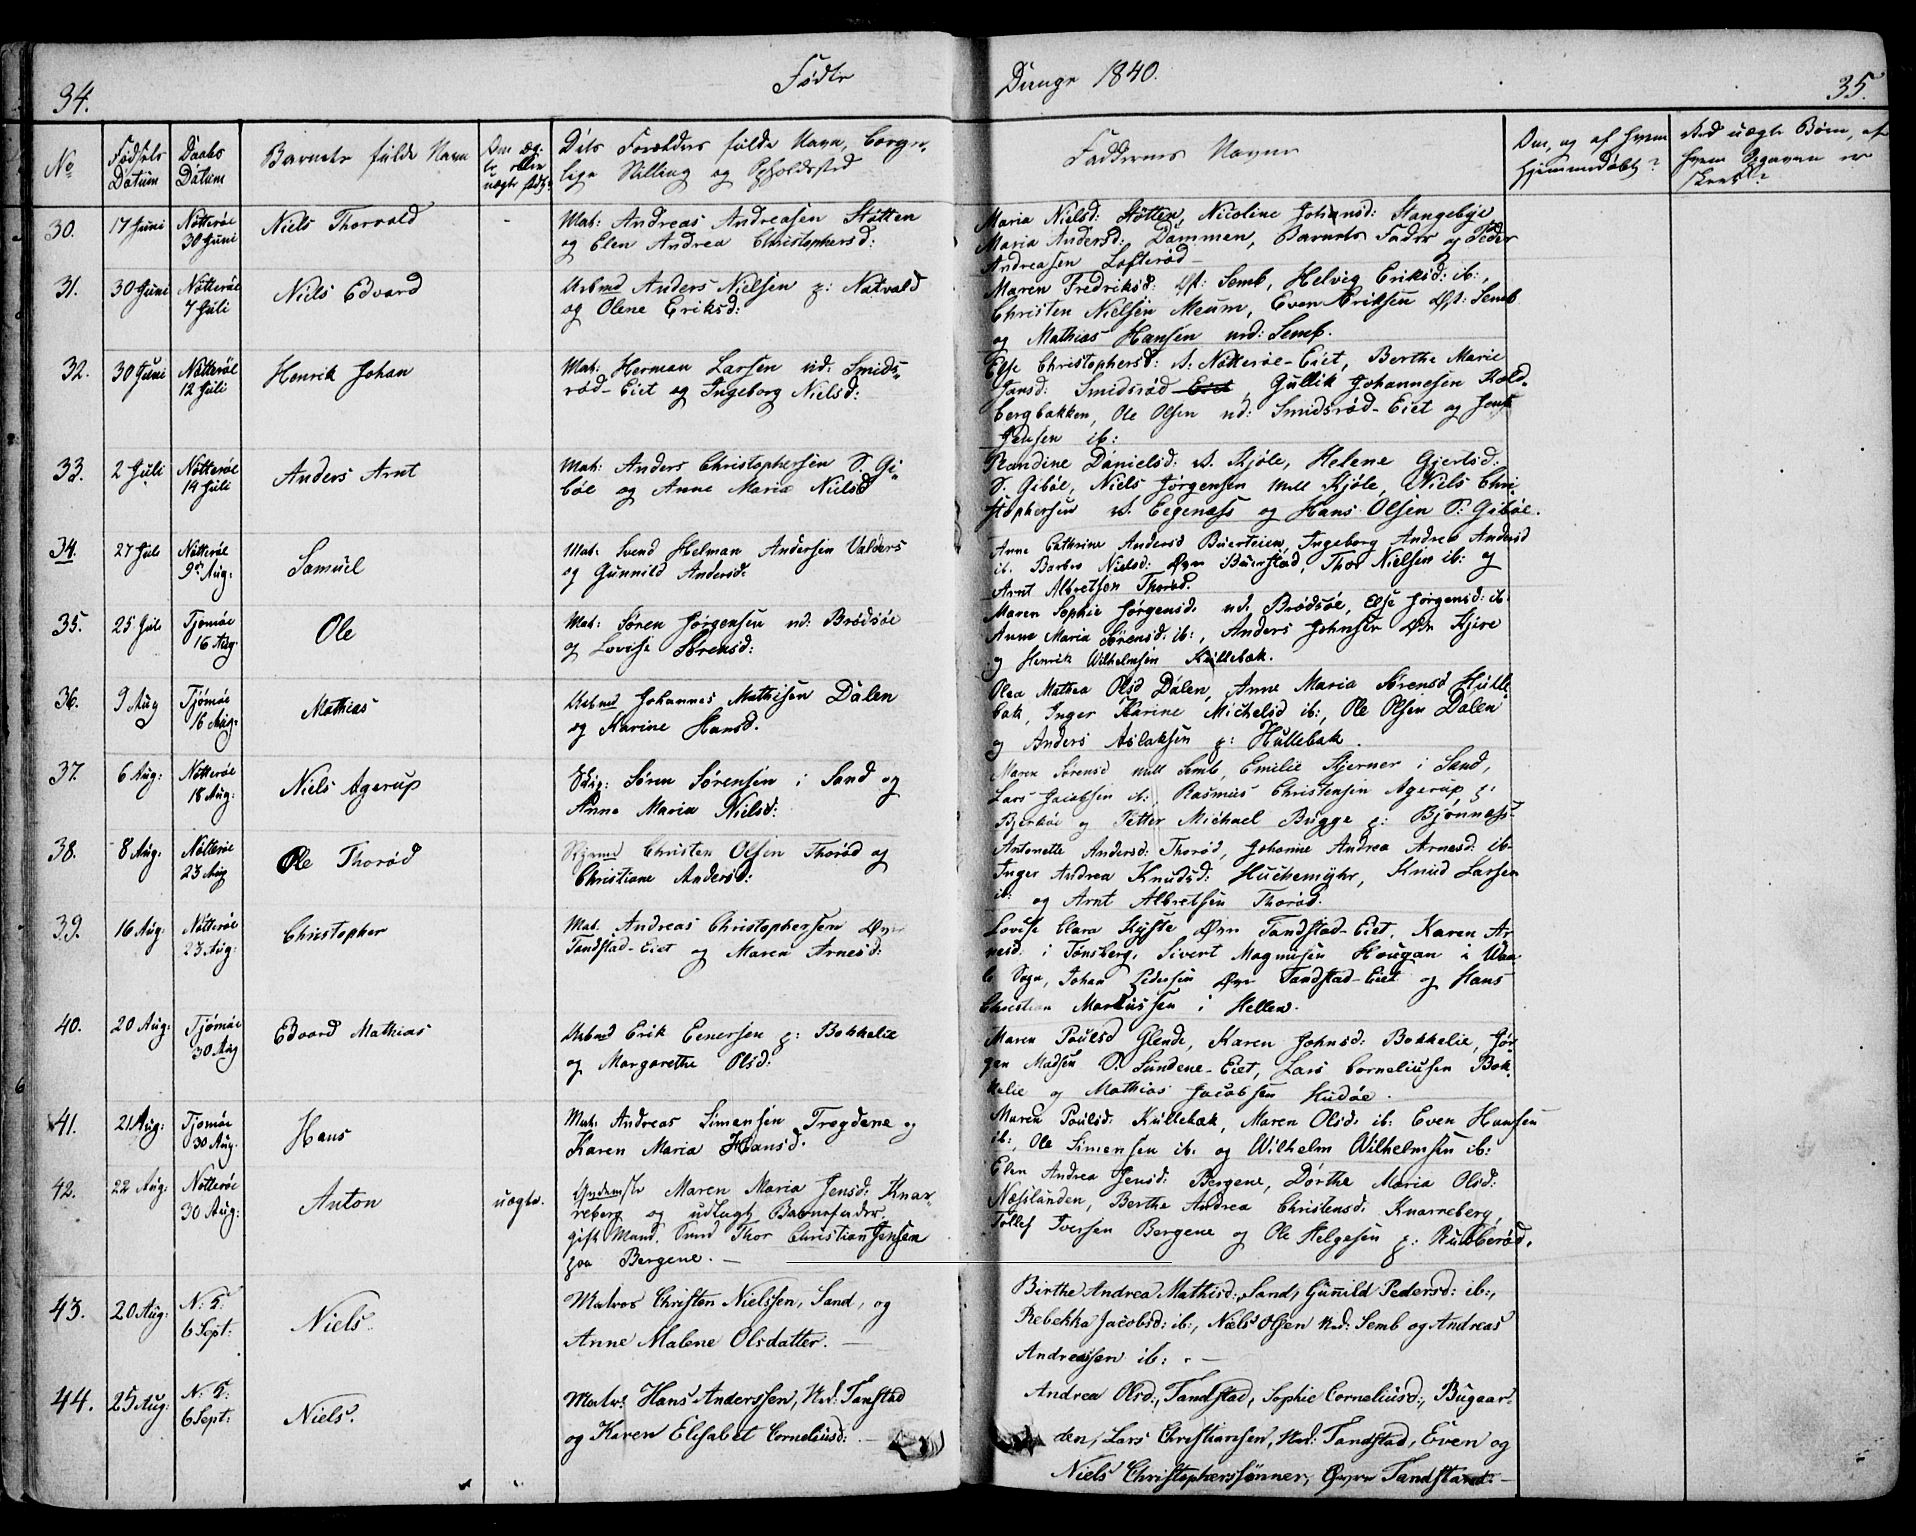 34.
Fødte
Drenge 1840.
35.
No
Fødsels Datum
Daabs Datum
Barnets fulde Navn
Om ægte eller uægte født?
Dets Forældres fulde Navn, borger-
lige Stilling og Opholdssted
Faddernes Navne
Om, og af hvem
hjemmedøbt?
Ved uægte Børn, af
hvem Opgaven er
skeet?
30. 17 Juni Nøtterøe 30 Juni Niels Thorvald -
Mat: Andreas Andreasen Støtten
og Elen Andrea Christophersd:
Maria Nielsd: Støtten, Nicoline Johansd: Stangebye
Maria Andersd: Dammen, Barnets Fader og Peder
Andreasen Lofterød
31. 30 Juni Nøtterøe 7 Juli Niels Edvard
Arbmd Anders Nielsen p: Natvald
og Olene Eriksd:
Maren Fredriksd: Øst: Semb, Helvig Eriksd: ib:,
Christen Nielsen Meum, Even Eriksen Øst: Semb
og Mathias Hansen ned: Semb.
32. 30 Juni Nøtterøe 12 Juli Henrik Johan
Mat: Herman Larsen nd: Smids-
rød-Eiet og Ingeborg Nielsd:
Else Christophersd: v. Nøtterøe-Eiet, Berthe Marie
Jansd: Smidsrød Eiet, Gullik Johannesen Kold-
bergbakken, Ole Olsen nd: Smidsrød-Eiet og Jens
Jensen ib:
33. 2 Juli Nøtterøe 14 Juli Anders Arnt
Mat: Anders Christophersen S. Gi-
bøe og Anne Maria Nielsd
Randine Danielsd: v. Kjøle, Helene Gjertsd:
S. Gibøe, Niels Jørgensen Mell Kjøle, Niels Chri-
stophersen v. Eegenæss og Hans Olsen S: Gibøe.
34. 27 Juli Nøtterøe 9de Aug: Samuel
Mat: Svend Helman Andersen Valders
og Gunnild Andersd:
Anne Cathrine Andersd Buerteien, Ingeborg Andrea Andersd
ib. Barbro Nielsd: Øvr Buerstad, Thor Nielsen ib: og
Arnt Albretsen Thorød.
35. 25 Juli Tjømøe 16 Aug: Ole
Mat: Søren Jørgensen nd: Brødsøe
og Lovise Sørensd:
Maren Sophie Jørgensd. nd. Brødsøe, Else Jørgensd: ib.
Anne Maria Sørensd. ib:, Anders Johnsen Øvr Kjære
og Henrik Wilhelmsen Kullebæk.
36. 9 Aug Tjømøe 16 Aug: Mathias
Arbmd Johannes Mathisen Dalen
og Karine Hansd.
Olea Mathea Olsd Dalen, Anne Maria Sørensd Hulle
bak, Inger Karine Michelsd ib:, Ole Olsen Dalen
og Anders Aslaksen p: Hullebak.
37. 6 Aug: Nøtterøe 18 Aug: Niels Agerup
Søren Sørensen i Sand og
Anne Maria Nielsd:
Maren Sørensd Mell Semb, Emilie Kjerner i Sand,
Lars Jacobsen ib:, Rasmus Christensen Agerup p:
Bjerkøe og Petter Michael Bugge p: Bjønness
38. 8 Aug. Nøtterøe 23 Aug Ole Thorød
Christen Olsen Thorød og
Christiane Andersd:
Antonette Andersd: Thorød, Johanne Andrea Arnesd: ib.
Inger Andrea Knudsd: Huchemyhr, Knud Larsen
ib: og Arnt Albretsen Thorød.
39. 16 Aug: Nøtterøe 23 Aug: Christopher
Mat. Andreas Christophersen Øvr
Tandstad-Eiet og Maren Arnesd:
Lovise Clara Kyste Øvr Tandstad-Eiet, Karen Ar
nesd. i Tønsberg, Sivert Magnusen Hougan i Vaa
le Sogn, Johan Pedersen Øvr Tandstad-Eiet og Hans
Christian Markussen i Hellen.
40. 20 Aug: Tjømøe 30 Aug Edvard Mathias
Arbmd Erik Enersen p: Bokkelie
og Margarethe Olsd:
Maren Poulsd Glende, Karen Johnsd: Bokkelie, Jør
gen Madsen S. Sundene-Eiet, Lars Corneliusen Bok-
kelie og Mathias Jacobsen Hudøe.
41. 21 Aug: Tjømøe 30 Aug. Hans
Mat. Andreas Simensen Trægdene og
Karen Maria Hansd.
Maren Poulsd: Kullebæk, Maren Olsd. ib: Even Hansen
ib:, Ole Simensen ib. og Wilhelm Wilhelmsen ib:
42. 22 Aug: Nøtterøe 30 Aug: Anton uægte.
Maren Maria Jensd: Knar-
reberg og udlagt Barnefader
gift Mand, Thor Christian Jensen
paa Bergene. -
Elen Andrea Jensd: Bergene, Dorthe Maria Olsd:
Næslunden, Berthe Andrea Christensd: Knarreberg,
Tollef Iversen Bergene og Ole Helgesen p: Rubberød.
43. 20 Aug: N: K: 6 Sept: Niels.
Matros Christen Nielssen, Sand, og
Anne Malene Olsdatter. -
Birthe Andrea Mathisd:, Sand, Gunild Pedersd: ib:,
Rebekka Jacobsd: ib:, Niels Olsen Ned: Semb og Andreas
Andreassen ib: . -
44. 25 Aug: N: K: 6 Sept: Niels.
Matr: Hans Anderssen, Ned: Tanstad
og Karen Elisabet Corneliusd: -
Andrea Olsd:, Tandstad, Sophie Corneliusd:, Bugaar-
den, Lars Christiansen, Ned: Tandstad, Even og
Niels Christopherssønner, Øvre Tandstad. -